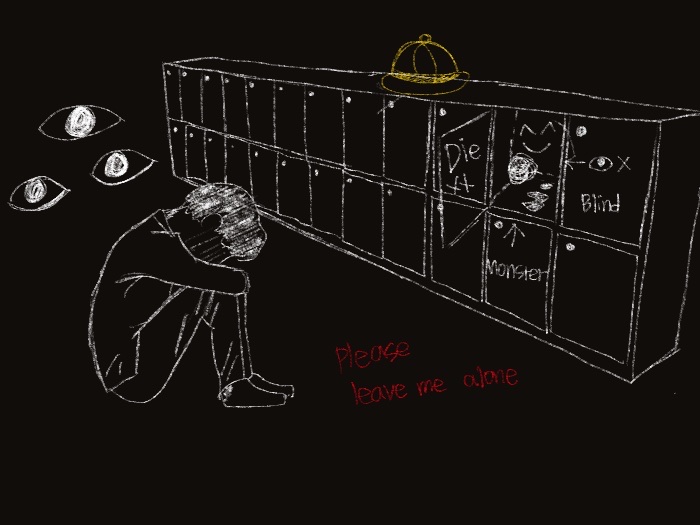 Die
Blind
Monster
Please
leave me alone